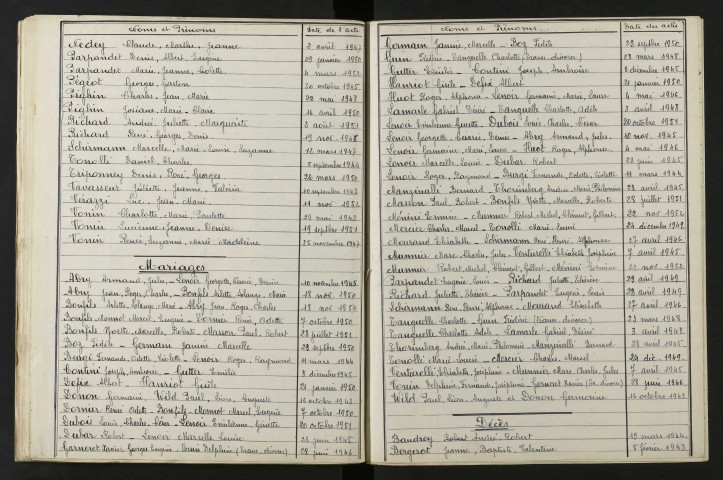 Noms et Prénoms Date de l'Acte
Nedey Claude, Marthe, Jeanne 2 avril 1947
Parpandet Denise, Albert, Eugène 29 janvier 1950
Parpandet Marie, Jeanne, Colette 4 mars 1952
Pégeot Georges, Gaston 20 octobre 1945
Pighin Charles, Jean, Marie 22 mai 1948
Pighin Josiane, Marie, Claire 16 avril 1950
Richard André, Juliette, Marguerite 3 août 1951
Richard René, Georges, Denis 19 nov. 1948
Schirmann Marcelle, Marie, Louise, Suzanne 12 mars 1947
Tonollé Daniel, Charles 5 septembre 1946
Triponney Denis, Rémi, Georges 26 mars 1950
Vavasseur Juliette, Jeanne, Victoria 10 septembre 1947
Vérazzi Luc, Jean, Marie 11 nov. 1952
Vonin Charlotte, Marie, Paulette 29 mai 1942
Vonin Lucienne, Jeanne, Denise 19 septbre 1951
Vonin Renée, Suzanne, Marie, Madeleine 25 novembre 1942
Mariages
Abry Armand, Jules - Lenoir Georgette, Césarie, Denise 10 novembre 1945
Abry Jean, Roger, Charles - Bonfils Arlette, Solange, Marie 18 nov. 1950
Bonfils Arlette, Solange, Marie - Abry Jean, Roger, Charles 18 nov. 1950
Bonfils Monnot Marcel, Eugène - Dornier Rémie, Odette 7 octobre 1950
Bonfils Yvette, Marcelle, Roberte - Masson Paul, Robert 28 juillet 1951
Boz Fidèle - Germain Janine, Marcelle 23 septbre 1950
Burgi Fernande, Odette, Violette - Lenoir Roger, Raymond 11 mars 1944
Contini Joseph, Ambroise - Gutter Emilie 8 décembre 1945
Défix Albert - Hanriot Gisèle 21 janvier 1950
Donon Germaine, Wild Paul, Léon, Auguste 16 octobre 1943
Dornier Rémie, Odette - Bonfils-Monnot Marcel, Eugène 7 octobre 1950
Dubois Louis, Charles, César - Lenoir Emilienne, Ginette 20 octobre 1951
Dubar Robert - Lenoir Marcelle, Louise 23 juin 1945
Garneret Xavier, Georges, Eugène - Vonin Delphine (Trans. divorce) 28 juin 1946
Noms et Prénoms Date des actes
Germain Janine, Marcelle - Boz Fidèle 23 septbre 1950
Guin Frédéric - Tanquelle Charlotte (Trans. divorce) 23 mars 1948
Gutter Emilie - Contini Joseph, Ambroise 8 décembre 1945
Hanriot Gisèle - Défix Albert 21 janvier 1950
Huot Roger, Alphonse - Lenoir Germaine, Marie, Laure 4 mai 1946
Lamarle Gabriel, Désiré - Tanquelle Charlotte, Adèle 3 avril 1948
Lenoir Emilienne, Ginette - Dubois Louis, Charles, César 20 octobre 1951
Lenoir Georgette, Césarie, Denise - Abry Armand, Jules 10 nov. 1945
Lenoir Germaine, Marie, Laure - Huot Roger, Alphonse 4 mai 1946
Lenoir Marcelle, Louise - Dubar Robert 23 juin 1945
Lenoir Roger, Raymond - Burgi Fernande, Odette, Violette 11 mars 1944
Manzinalli Bernard - Thorimberg Andrée, Marie, Philomène 28 avril 1945
Masson Paul, Robert - Bonfils Yvette, Marcelle, Roberte 28 juillet 1951
Mercier Charles, Marcel - Tonollé Marie, Louise 24 décembre 1949
Mourand Elisabeth - Schirmann René, Henri, Alphonse 27 avril 1946
Munnier Marc, Charles, Jules - Venturelli Elisabeth, Joséphine 7 avril 1945
Munnier Robert, Michel, Clément, Gilbert - 22 nov. 1952
Parpandet Eugène, Louis - Richard Juliette, Thérèse 23 avril 1949
Richard Juliette, Thérèse - Parpandet Eugène, Louis 23 avril 1949
Schirmann René, Henri, Alphonse - Mourand Elisabeth 27 avril 1946
Tanquelle Charlotte - Guin Frédéric (Trans. divorce) 23 mars 1948
Tanquelle Charlotte, Adèle - Lamarle Gabriel, Désiré 3 avril 1948
Thorimberg Andrée, Marie, Philomène - Manzinalli Bernard 28 avril 1945
Tonollé Marie, Louise - Mercier Charles, Marcel 24 déc. 1949
Venturelli Elisabeth, Joséphine - Munnier Marc, Charles, Jules 7 avril 1945
Vonin Delphine, Fernande, Joséphine - Garneret Xavier (Tr. divorce) 28 juin 1946
Wild Paul, Léon, Auguste et Donon Germaine 16 octobre 1943
Décès
Baudrey Robert, André, Robert 19 mars 1944
Bergerot Jeanne, Baptiste, Valentine 5 février 1943